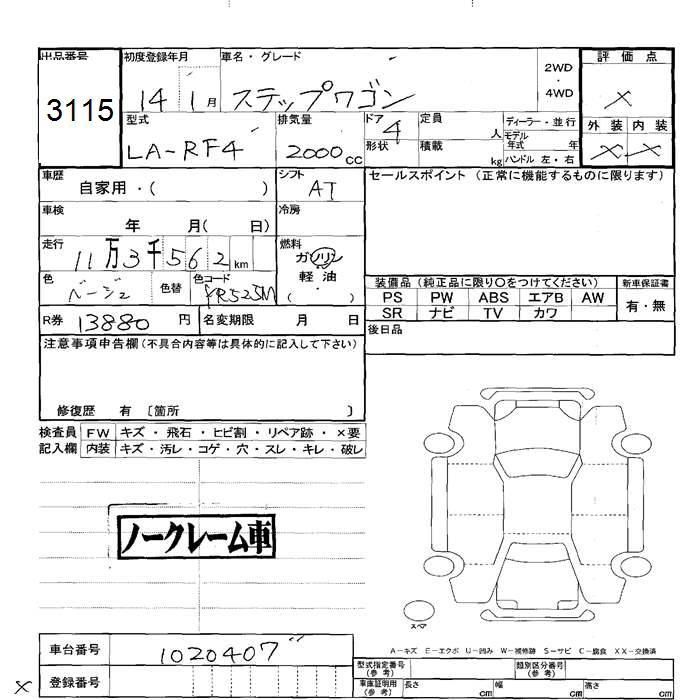 出品番号 初度登録年月 車名・グレード 評価点
3115 14 1月 ステップワゴン 2WD ・ 4WD ×
型式 排気量 ドア 定員 ディーラー・並行 外装 内装
LA-RF4 2000cc 4 人 モデル年式 年 × ×
形状 積載 kg ハンドル 左・右
車歴 自家用・( ) シフト AT セールスポイント (正常に機能するものに限ります)
車検 年 月( 日) 冷房
走行 11万3千562km 燃料 ガソリン
軽油
( )
色 ベージュ 色替 色コード YR525M
装備品 (純正品に限り○をつけてください) 新車保証書
PS PW ABS エアB AW 有・無
SR ナビ TV カワ
R券 13880円 名変期限 月 日 後日品
注意事項申告欄(不具合内容等は具体的に記入して下さい)
修復歴 有 〔箇所 〕
検査員 FW キズ・飛石・ヒビ割・リペア跡・×要
記入欄 内装 キズ・汚レ・コゲ・穴・スレ・キレ・破レ
ノークレーム車
スペア
A-キズ E-エクボ U-凹み W-補修跡 S-サビ C-腐食 XX-交換済
車台番号 1020407
× 登録番号
型式指定番号(参考) 類別区分番号(参考)
車庫証明用(参考) 長さ cm 幅 cm 高さ cm